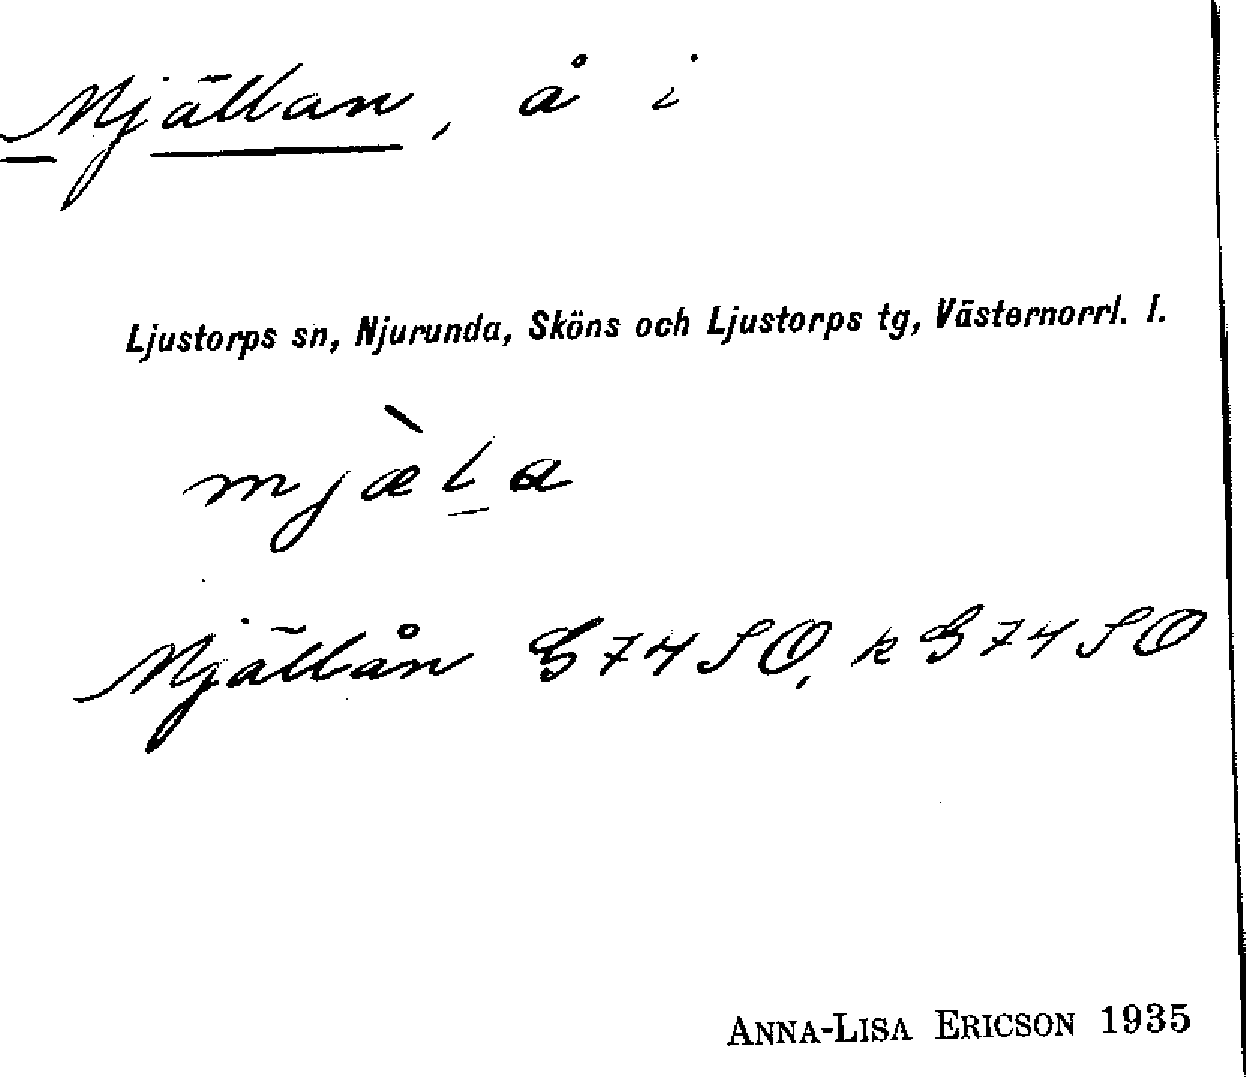 Mjällan, å i
Ljustorps sn, Njurunda, Sköns och Ljustorps tg, Västernorrl. l.
mjæ̀l̠a
Mjällån G 74 SO, k G 74 SO
ANNA-LISA ERICSON 1935